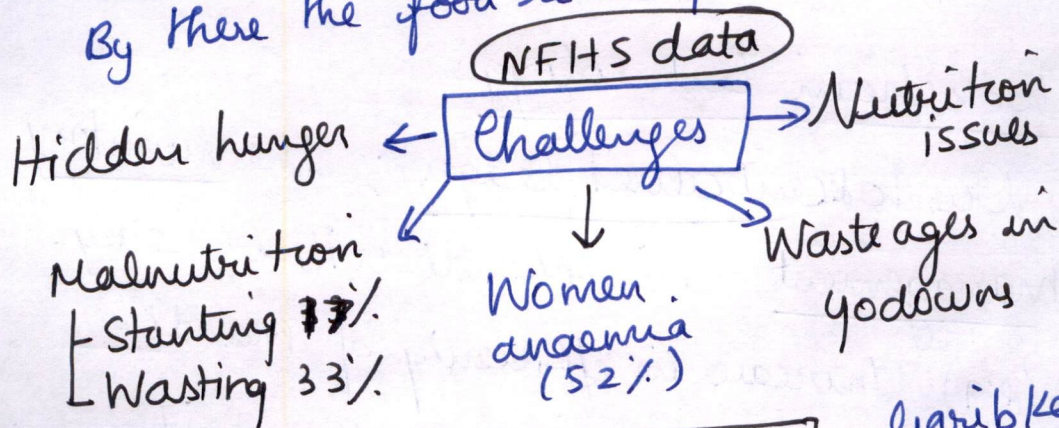 By there the food
NFHS data
Challenges
Hidden hunger
Nutrition
issues
Malnutrition
Stunting %
Wasting 33%
Women
anaemia
(52%)
Wasteages in
godowns
Garib